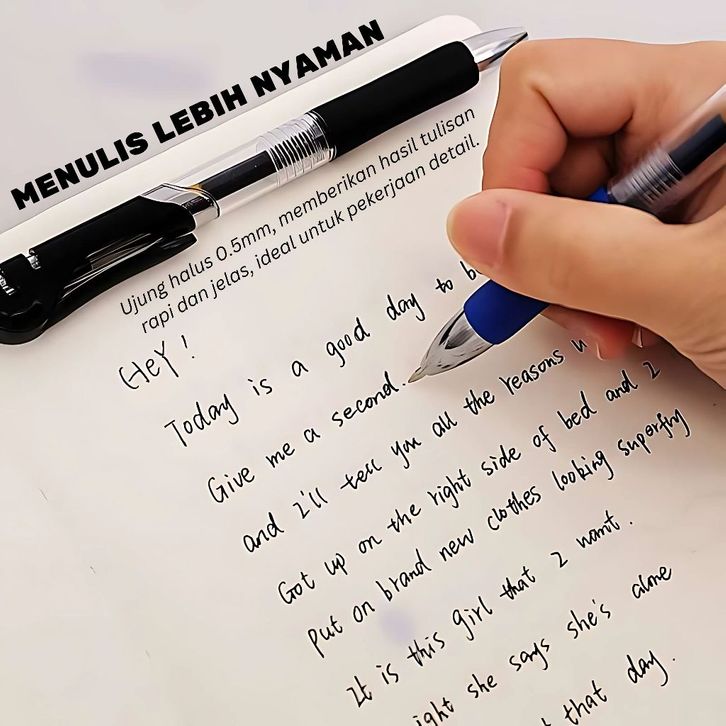 MENULIS LEBIH NYAMAN
Ujung halus 0.5mm, memberikan hasil tulisan
rapi dan jelas, ideal untuk pekerjaan detail.
HeY!
Today is a good day to
Give me a second.
and I'll tell you all the reasons
Got up on the right side of bed and I
Put on brand new clothes looking superfly
It is this girl that I want.
she says she's alone
that day.